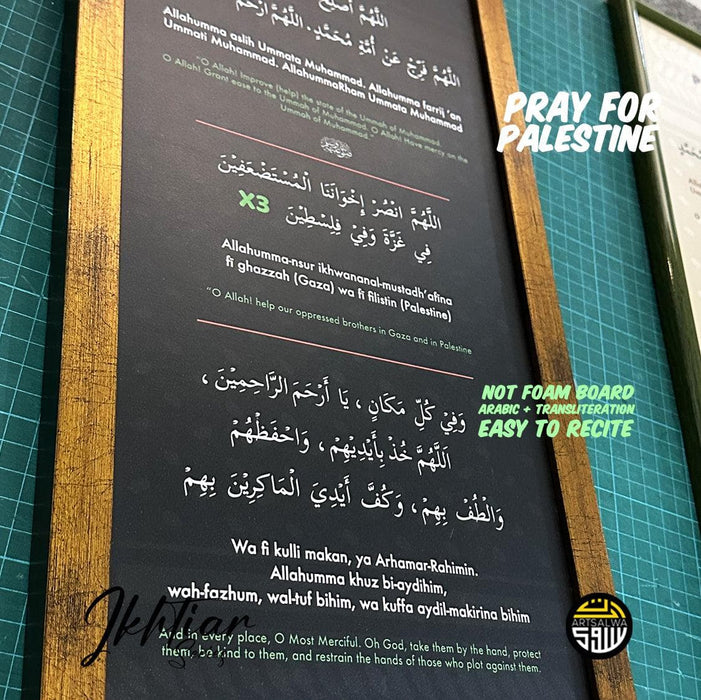 اللَّهُمَّ أَصْلِحْ
اللَّهُمَّ فَرِّجْ عَنْ أُمَّةِ مُحَمَّدٍ. اللَّهُمَّ ارْحَمْ
Allahumma aslih Ummata Muhammad. Allahumma farrij 'an
Ummati Muhammad. AllahummaRham Ummata Muhammad
"O Allah! Improve (help) the state of the Ummah of Muhammad
O Allah! Grant ease to the Ummah of Muhammad. O Allah! Have mercy on the
Ummah of Muhammad."
اللَّهُمَّ انْصُرْ إِخْوَانَنَا الْمُسْتَضْعَفِيْنَ
فِي غَزَّةَ وَفِيْ فِلِسْطِيْنَ X3
Allahumma-nsur ikhwananal-mustadh'afina
fi ghazzah (Gaza) wa fi filistin (Palestine)
"O Allah! help our oppressed brothers in Gaza and in Palestine
وَفِيْ كُلِّ مَكَانٍ ، يَا أَرْحَمَ الرَّاحِمِيْنَ ،
اَللَّهُمَّ خُذْ بِأَيْدِيْهِمْ ، وَاحْفَظْهُمْ
وَالْطُفْ بِهِمْ ، وَكُفَّ أَيْدِيَ الْمَاكِرِيْنَ بِهِمْ
Wa fi kulli makan, ya Arhamar-Rahimin.
Allahumma khuz bi-aydihim,
wah-fazhum, wal-tuf bihim, wa kuffa aydil-makirina bihim
And in every place, O Most Merciful. Oh God, take them by the hand, protect
them, be kind to them, and restrain the hands of those who plot against them.
PRAY FOR
PALESTINE
NOT FOAM BOARD
ARABIC + TRANSLITERATION
EASY TO RECITE
Ikhtiar
ARTSALWA